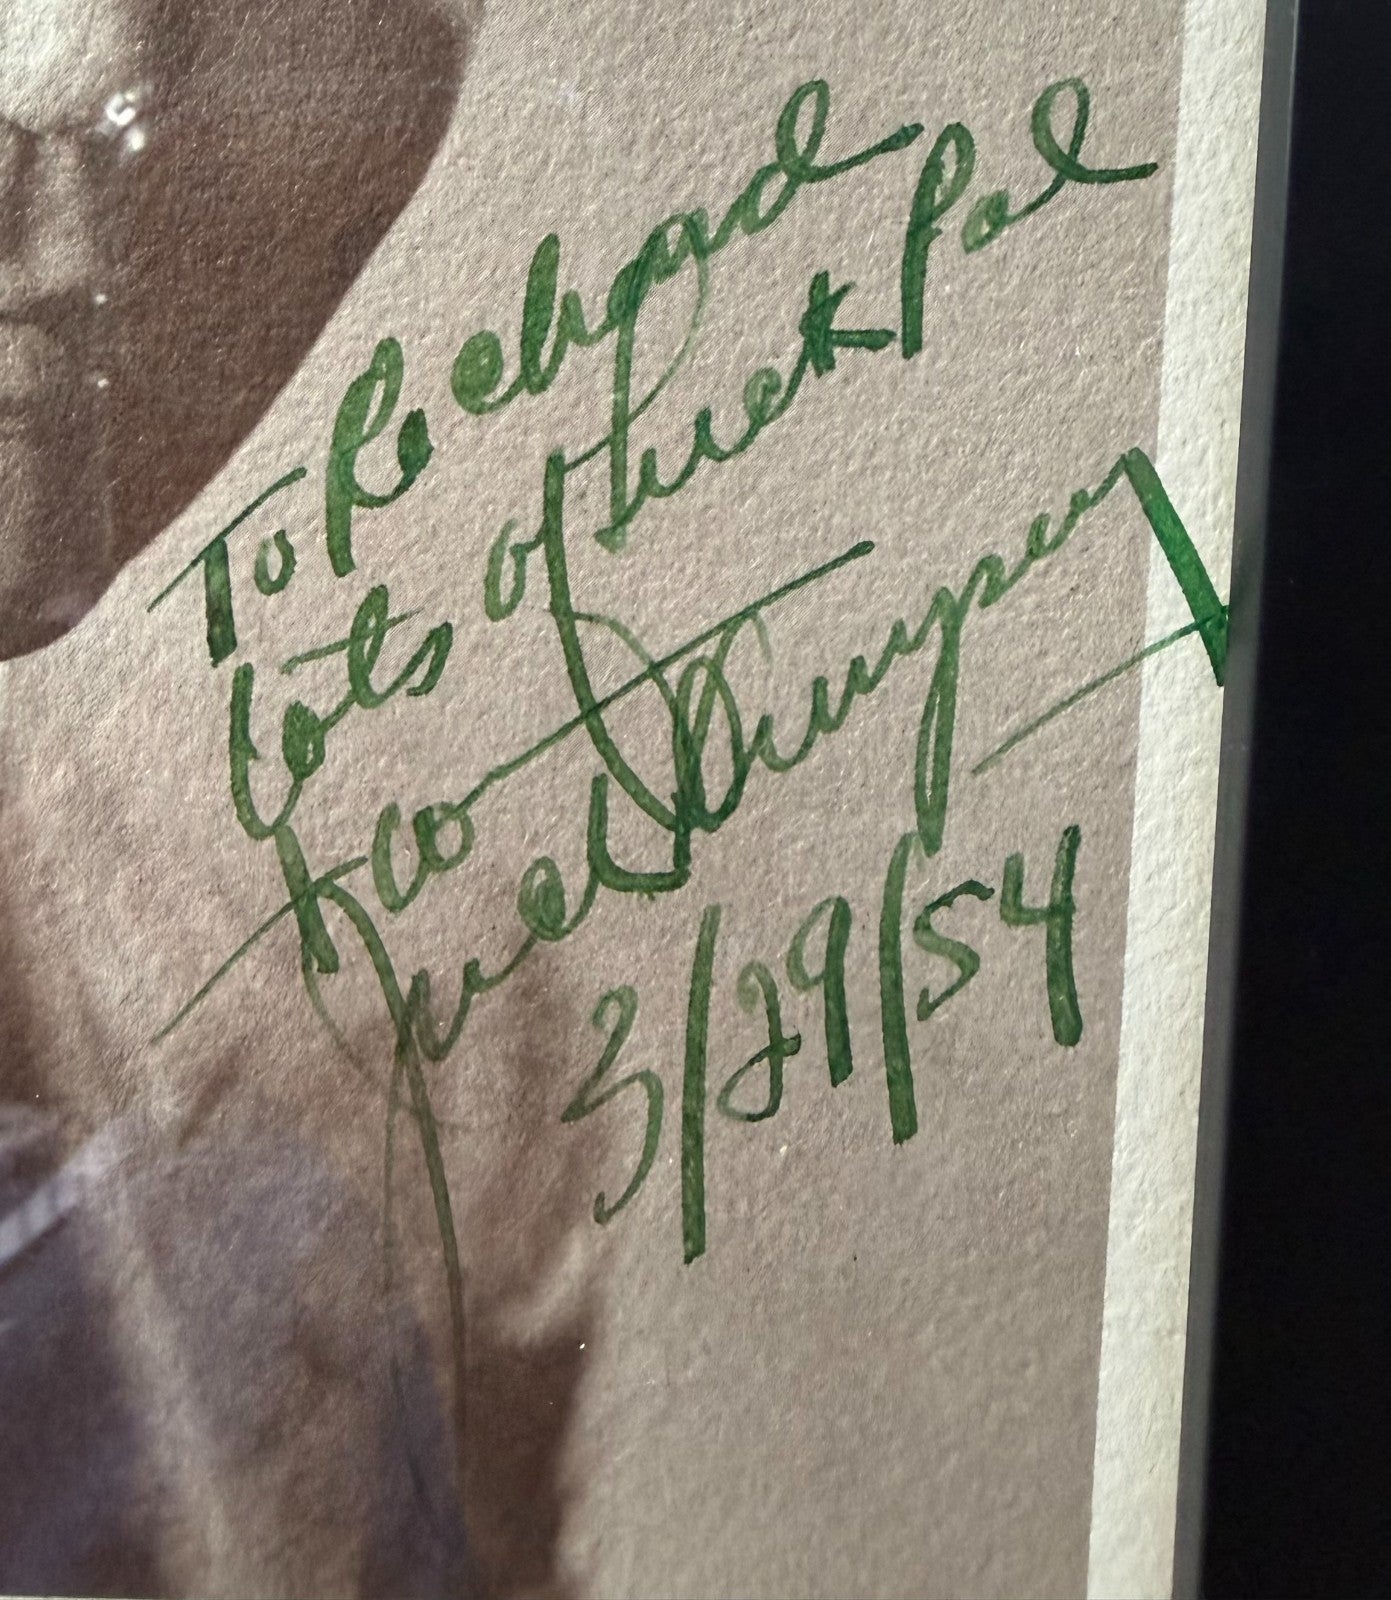 To Richard
Lots of luck Pal
Jack Dempsey
3/29/54